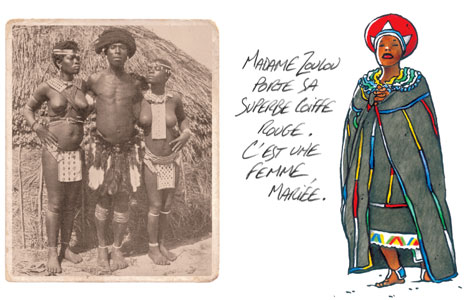 MADAME ZOULOU
PORTE SA
SUPERBE COIFFE
ROUGE.
C'EST UNE
FEMME
MARIÉE.